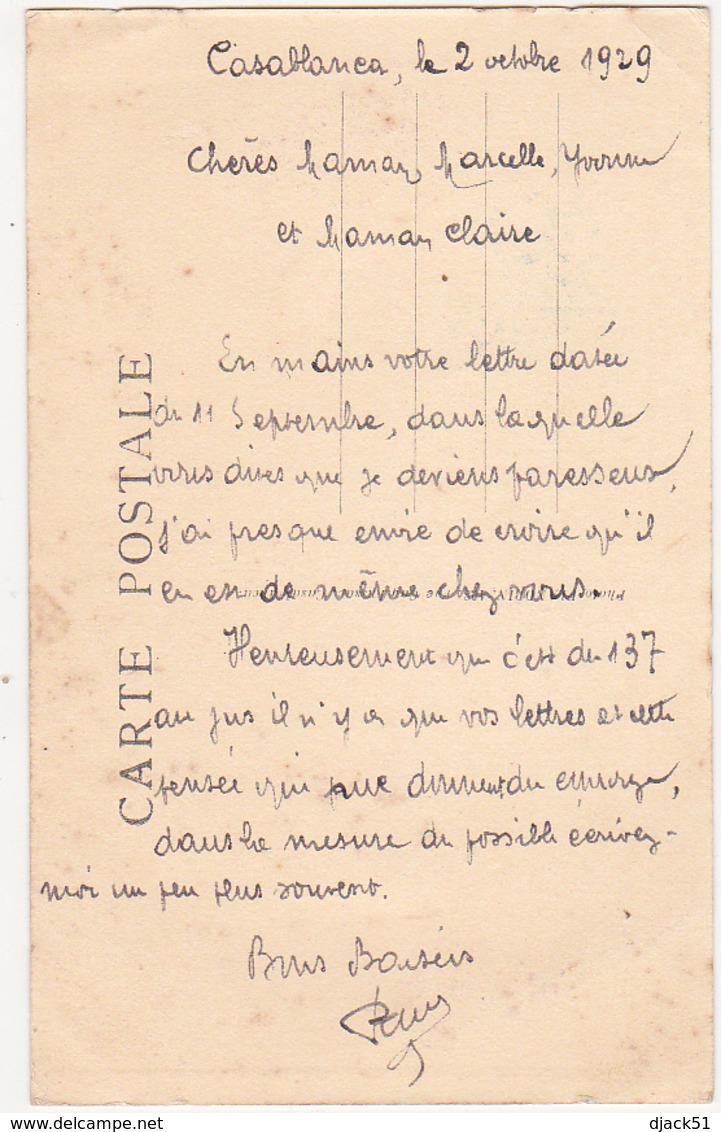 Casablanca, le 2 octobre 1929
Chères Maman, Marcelle, Yvonne
et Maman Claire
En mains votre lettre datée
du 11 Septembre, dans laquelle
vous dites que je deviens paresseux,
j'ai presque envie de croire qu'il
en est de même chez vous.
Heureusement que c'est du 137
au jus il n'y a que vos lettres et cette
pensée qui me donnent du courage,
dans la mesure du possible écrivez-
moi un peu plus souvent.
Bons Baisers
CARTE POSTALE
djack51